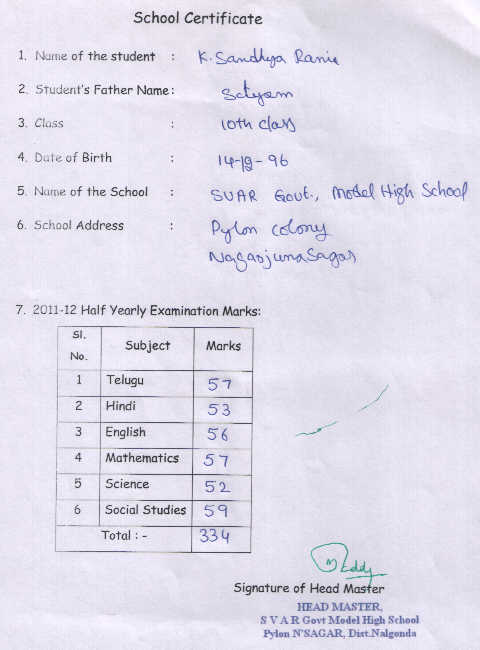 School Certificate
1. Name of the student : K. Sandhya Rani
2. Student's Father Name : Satyam
3. Class : 10th class
4. Date of Birth : 96
5. Name of the School : SVAR Govt., Model High School
6. School Address : Pylon colony
Nagarjuna Sagar
7. 2011-12 Half Yearly Examination Marks:
Sl. No. Subject Marks
1 Telugu 57
2 Hindi 53
3 English 56
4 Mathematics 57
5 Science 52
6 Social Studies 59
Total : - 334
Signature of Head Master
HEAD MASTER,
S V A R Govt Model High School
Pylon N'SAGAR, Dist.Nalgonda